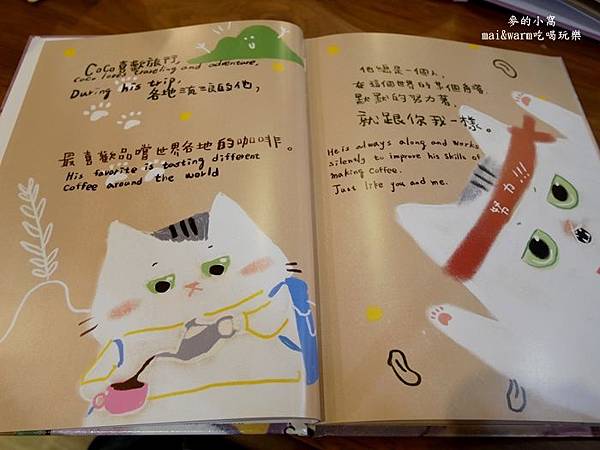 麥的小窩
mai&warm吃喝玩樂
CoCo喜歡旅行,
CoCo loves traveling and adventure,
During his trip.
各地流浪的他,
最喜歡品嚐世界各地的咖啡。
His favorite is tasting different
Coffee around the world
他總是一個人,
在這個世界的某個角落,
默默的努力著,
就跟你我一樣。
He is always along and works
silently to improve his skills of
making Coffee.
Just like you and me.
努力!!!